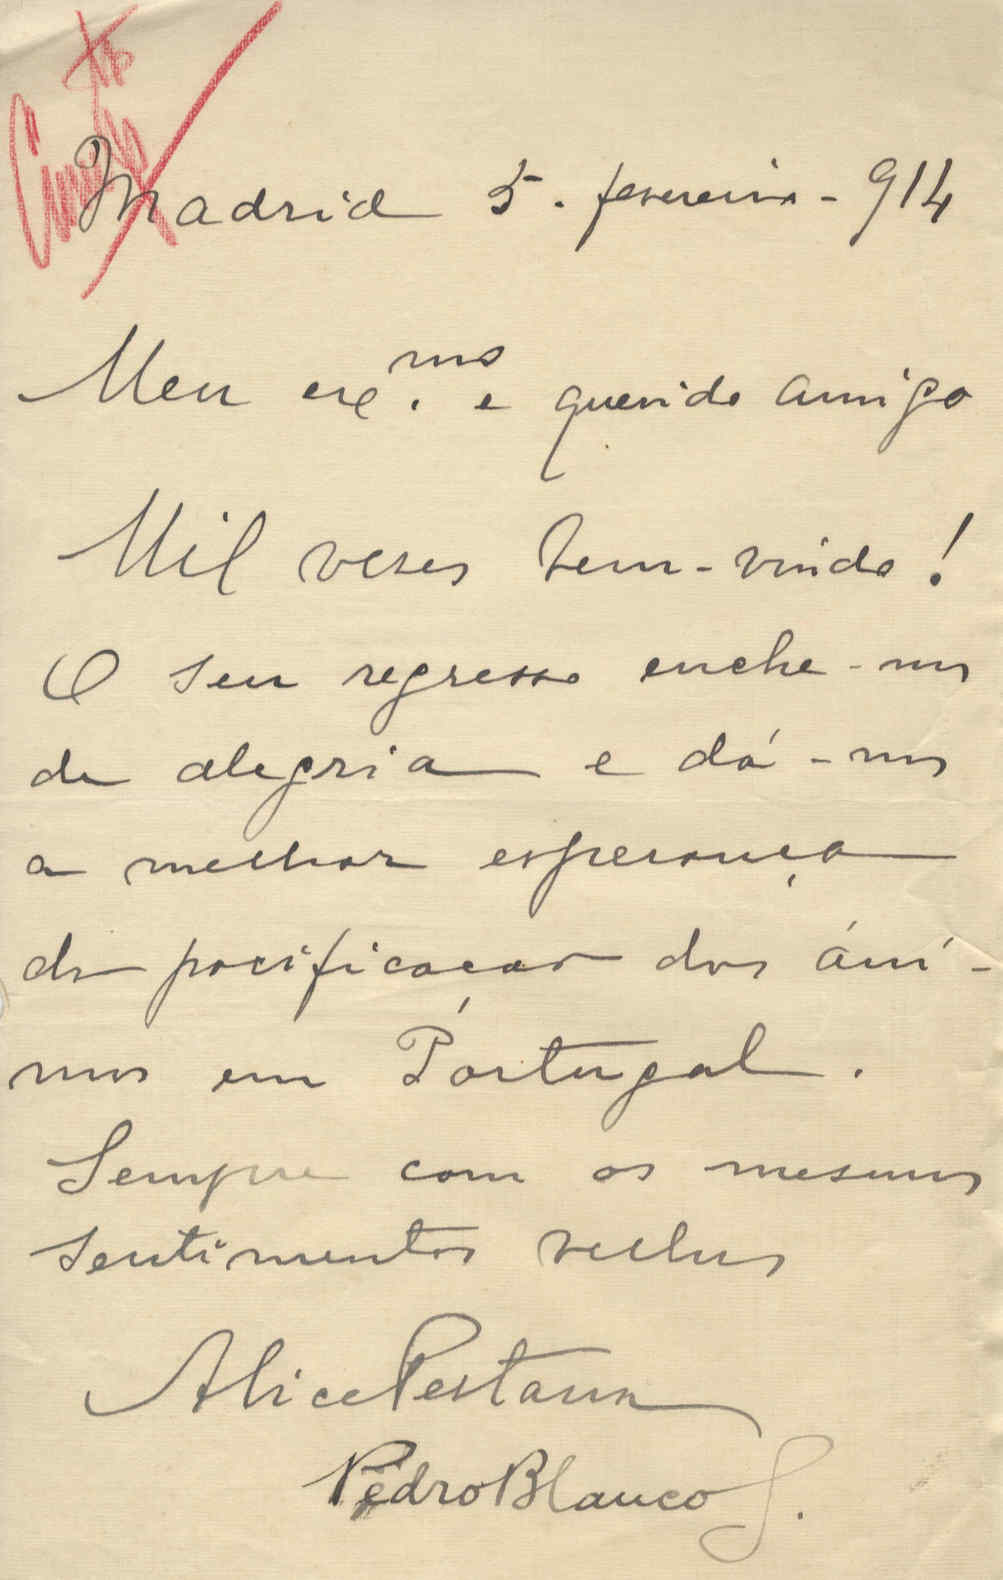 Madrid 5. fevereiro - 914
Meu exc.mo e querido amigo
Mil vezes bem-vindo!
O seu regresso enche-nos
de alegria e dá-nos
a melhor esperança
da pacificaçao dos áni-
mos em Portugal.
Sempre com os mesmos
sentimentos velhos
Alice Pestana
Pedro Blanco S.